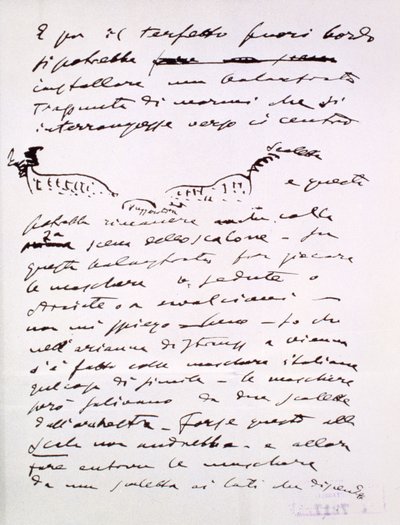 E poi il terzetto fuori bordo
si potrebbe
installare una balaustrata
di marmi che si
interrompesse verso il centro
Scaletta
e questa
potrebbe rimanere colla
2a scena dello scalone - su
questa balaustrata far giocare
le maschere o sedute o
sdraiate o a cavalcioni -
non mi spiego bene - so che
nell'arianna di Strauss a Vienna
s'è fatto colle maschere italiane
qualcosa di simile - le maschere
però salivano da due scalette
dall'orchestra - Forse questo alla
Scala non andrebbe - e allora
fare entrare le maschere
da una scaletta ai lati che